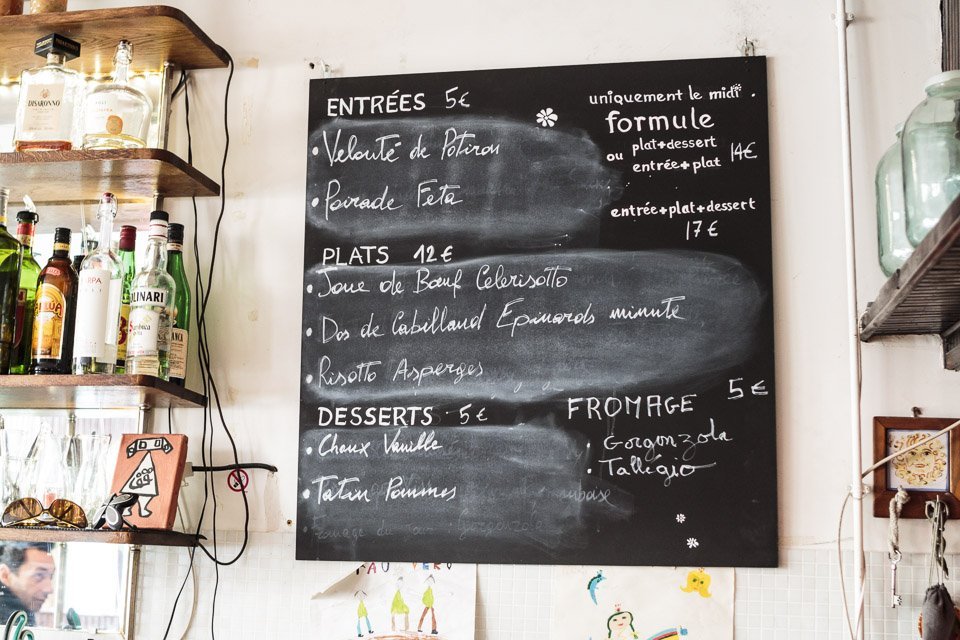 ENTRÉES 5€
• Velouté de Potiron
• Poirade Feta
PLATS 12€
• Joue de Bœuf Celerisotto
• Dos de Cabillaud Epinards minute
• Risotto Asperges
DESSERTS 5€
• Choux Vanille
• Tatin Pommes
uniquement le midi.
formule
ou plat+dessert
entrée+plat 14€
entrée+plat+dessert
17€
FROMAGE 5€
• Gorgonzola
• Tallégio
DISARONNO
MOLINARI